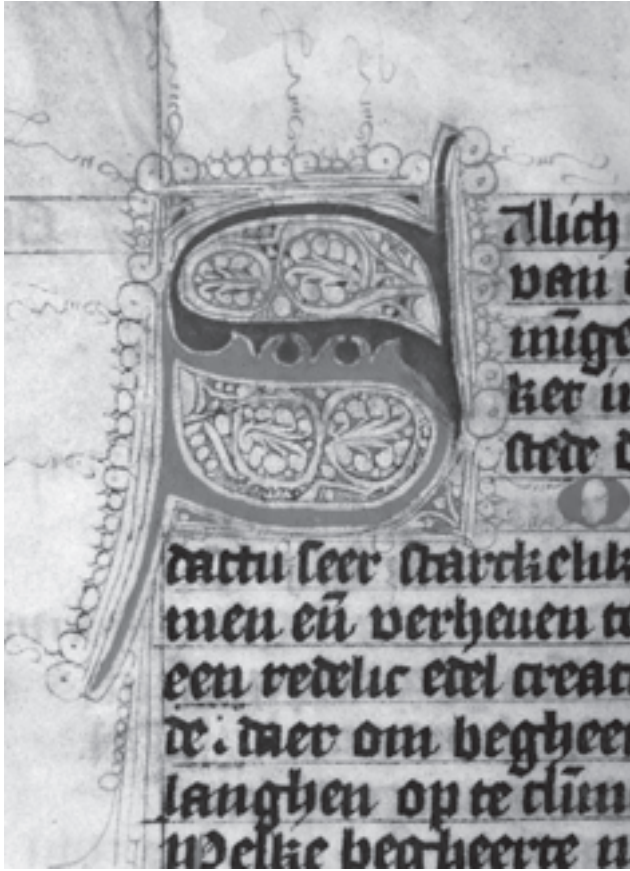 S Alich
van
ker in
stede d
dattu seer starckelik
men eñ verheuen to
een redelic edel creat
de. daer om begheer
langhen op te clim
Welke begheerte